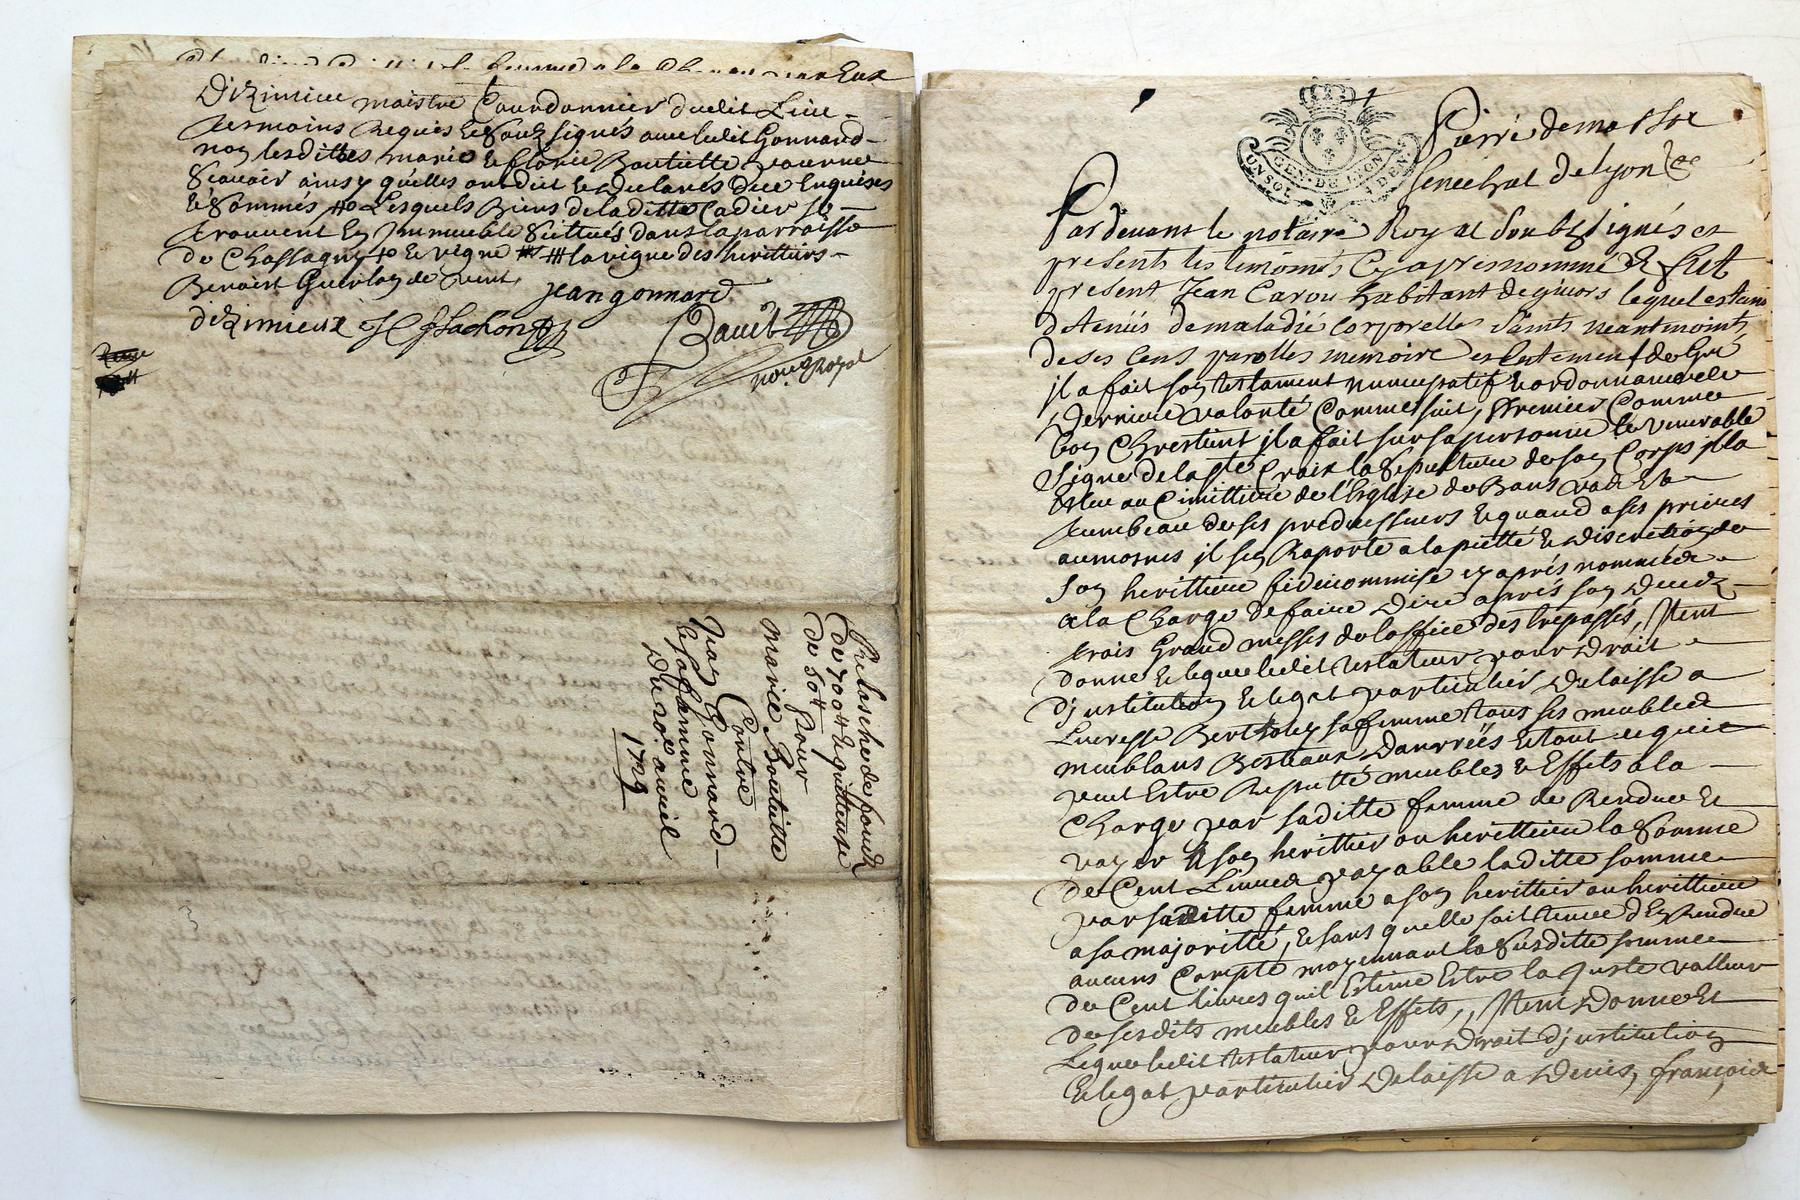 Dizimieu maistre Courdonnier dudit Lieu
tesmoins Requis & soubzsignés avec ledit Gonnard
non lesdittes marie & florie Boutiette pour ne
scavoir ainsy qu'elles ont dit & declarés de ce Enquises
& sommés Lesquels Biens de laditte Cadier se
trouvent En Immeuble scittués dans la parroisse
de Chassagny & vigne la vigne des heritiers
Benoist de vient
dizimieux Jean gonnard
flachon
Bauet
nore Royal
de 700lt & quitteuse
de 50lt Pour
marie Boutiette
Contre
Jean Gonnard
& sa famme
Du 10e avril
1729
UN SOL
GEN. DE LYON
DEN
Pierre de masso
senechal de lyon &c
Pardevant le notaire Royal soubzsignés et
presents les temoins Cy apres nommé & fut
present Jean Carou habitant de givors lequel estant
détenüs de maladié corporelle sain neantmoins
de ses sens parolles memoire et Entement de Gré
il a fait son testament nuncupatif & ordonnance de
Derniere volonté Comme suit, Premier Comme
bon Chrestient il a fait sur sa personne le venerable
Signe de la ste Croix la sepulture de son Corps il la
Esleu au Cimittiere de l'Esglise de Bans
tumbeau de ses predecesseurs & quand a ses prieres
aumosnes il s'en Raporte a la pietté & discretion de
son herittiere fideicommise cy aprés nommée
a la Charge de faire Dire aprés son Deces
trois Grand messes de l'office des trepassés, Item
donne & legue ledit testateur pour Droit
d'institution & legat particulier Delaisse a
Lucresse Bertholey sa femme tous ses meubles
meublans Bestiaux Danrrées & tout ce qui
peut Estre Reputté meubles & Effets a la
Charge par saditte femme de Rendre Et
payer A son herittier ou herittiere la somme
de Cent Livres payable laditte somme
par saditte femme a son herittier ou herittiere
a sa majoritté, & sans quelle soit tenue d'En Rendre
aucuns Compte moyennant la susditte somme
de Cent livres quil Estime Estre la juste valleur
de sesdits meubles & Effets, Item Donne Et
Legue ledit testateur pour Droit d'institution
& legat particulier Delaisse a Denis, françois